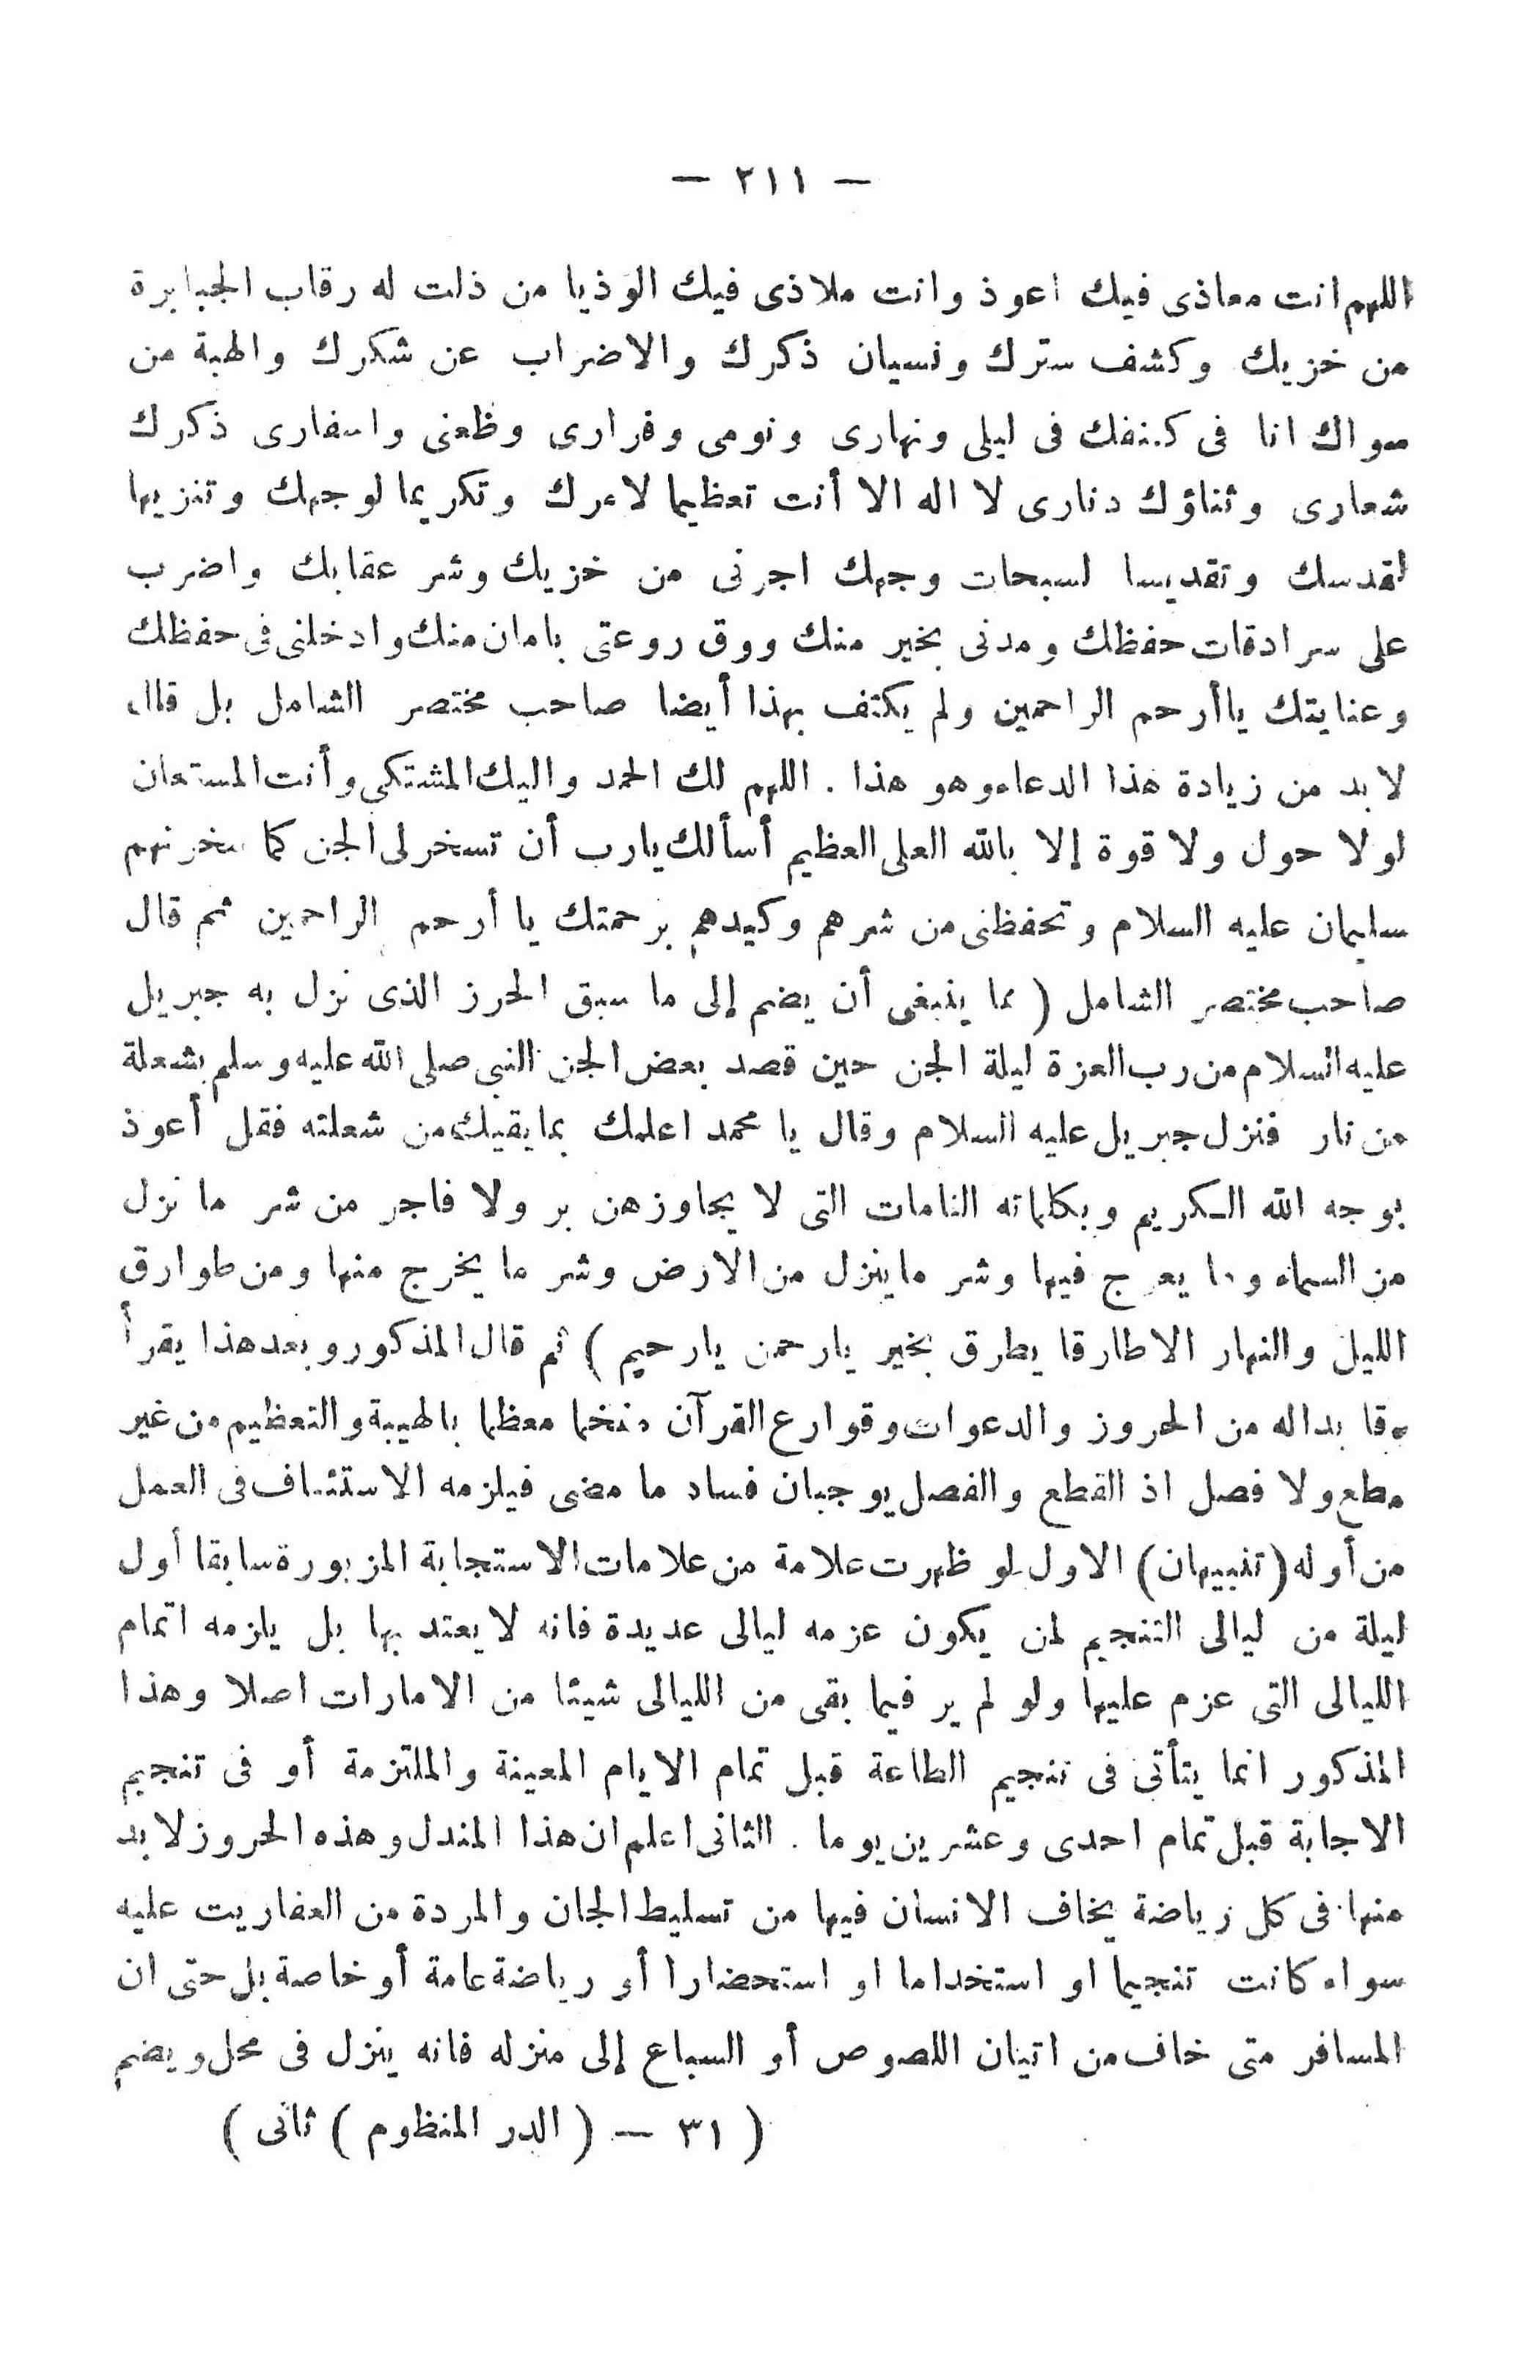 — ٢١١ —
اللهم انت معاذى فيك اعوذ وانت ملاذى فيك الوذ يا من ذلت له رقاب الجبابرة
من خزيك وكشف سترك ونسيان ذكرك والاضراب عن شكرك والهبة من
سواك انا فى كنفك فى ليلى ونهارى ونومى وقرارى وظعنى واسفارى ذكرك
شعارى وثناؤك دنارى لا اله الا أنت تعظيما لامرك وتكريما لوجهك وتنزيها
لقدسك وتقديسا لسبحات وجهك اجرنى من خزيك وشر عقابك واضرب
على سرادقات حفظك ومدنى بخير منك ووق روعتى بامان منك وادخلنى فى حفظك
وعنايتك ياأرحم الراحمين ولم يكتف بهذا أيضا صاحب مختصر الشامل بل قال
لابد من زيادة هذا الدعاء وهو هذا . اللهم لك الحمد واليك المشتكى وأنت المستعان
لولا حول ولا قوة إلا بالله العلى العظيم أسألك يارب أن تسخر لى الجن كما سخرتهم
سليمان عليه السلام وتحفظنى من شرهم وكيدهم برحمتك يا أرحم الراحمين ثم قال
صاحب مختصر الشامل ( مما ينبغى أن يضم إلى ما سبق الحرز الذى نزل به جبريل
عليه السلام من رب العزة ليلة الجن حين قصد بعض الجن النبى صلى الله عليه وسلم بشعلة
من نار فنزل جبريل عليه السلام وقال يا محمد اعلمك بما يقيك من شعلته فقل أعوذ
بوجه الله الكريم وبكلماته التامات التى لا يجاوزهن بر ولا فاجر من شر ما نزل
من السماء وما يعرج فيها وشر ماينزل من الارض وشر ما يخرج منها ومن طوارق
الليل والنهار الا طارقا يطرق بخير يارحمن يارحيم ) ثم قال المذكور وبعد هذا يقرأ
بداله من الحروز والدعوات وقوارع القرآن معظما بالهيبة والتعظيم من غير
مطع ولا فصل اذ القطع والفصل يوجبان فساد ما مضى فيلزمه الاستئناف فى العمل
من أوله ( تنبيهان ) الاول لو ظهرت علامة من علامات الاستجابة المزبورة سابقا أول
ليلة من ليالى التنجيم لمن يكون عزمه ليالى عديدة فانه لا يعتد بها بل يلزمه اتمام
الليالى التى عزم عليها ولو لم ير فيما بقى من الليالى شيئا من الامارات اصلا وهذا
المذكور انما يتأتى فى تنجيم الطاعة قبل تمام الايام المعينة والملتزمة أو فى تنجيم
الاجابة قبل تمام احدى وعشرين يوما . الثانى اعلم ان هذا المندل وهذه الحروز لابد
منها فى كل رياضة يخاف الانسان فيها من تسليط الجان والمردة من العفاريت عليه
سواء كانت تنجيما او استخداما او استحضارا أو رياضة عامة أو خاصة بل حتى ان
المسافر متى خاف من اتيان اللصوص أو السباع إلى منزله فانه ينزل فى محل ويضم
( ٣١ — ( الدر المنظوم ) ثانى )